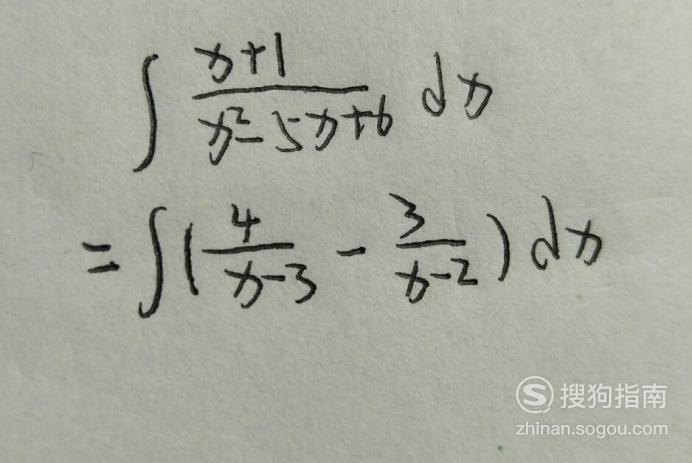 ∫ x+1 / x²-5x+6 dx
= ∫ ( 4 / x-3 - 3 / x-2 ) dx
S 搜狗指南
zhinan.sogou.com